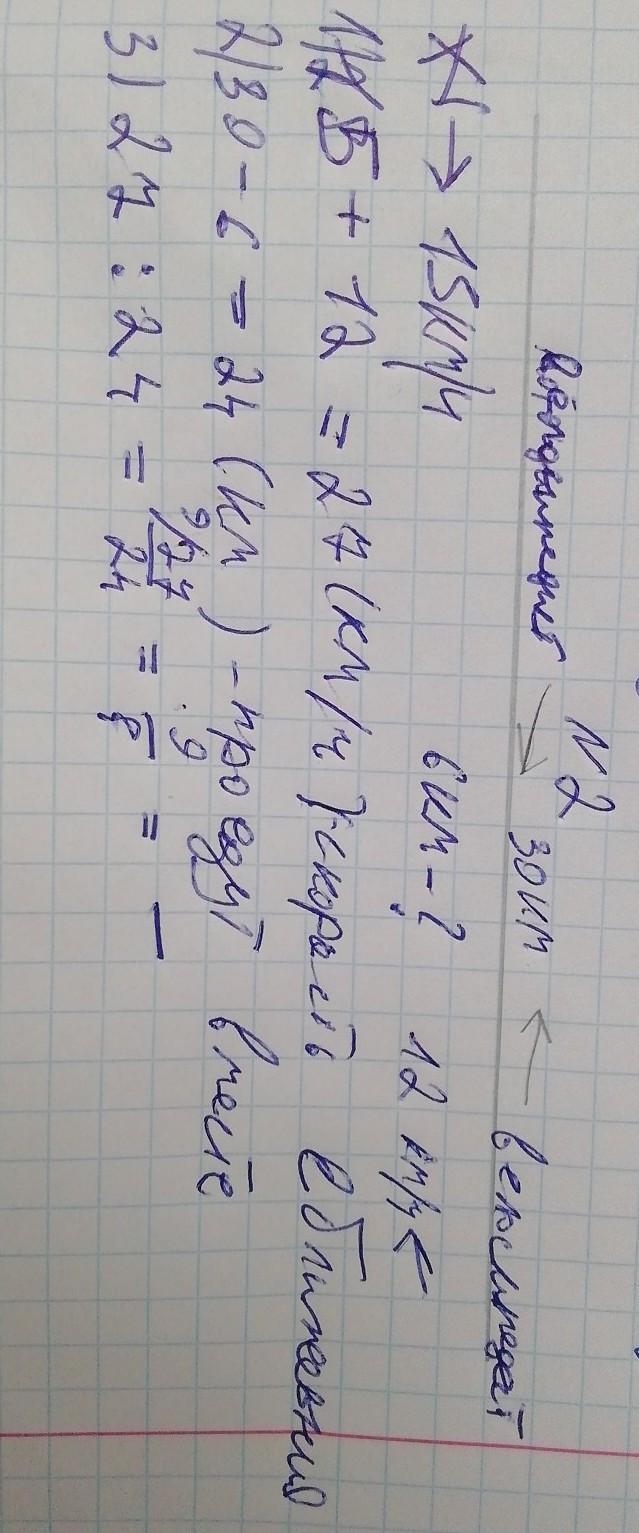 N2
велосипедист → 30 км ← велосипедист
X1 → 15 км/ч 6 км - ? 12 км/ч ←
1) 15 + 12 = 27 (км/ч) - скорость сближения
2) 30 - 6 = 24 (км) - проедут вместе
3) 27 : 24 = 27/24 = 9/8 =